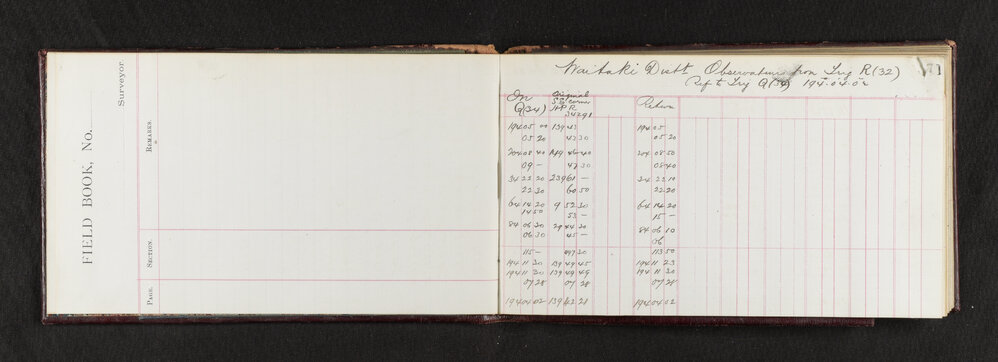 FIELD BOOK, No.
Surveyor.
REMARKS.
SECTION.
PAGE.
71
Waitaki Distt Observations from Trig R (32)
Ref to Trig Q (34) 194.04.02
On Original Return
Q(34) S E corner
34291
194 05 00 139 43 194 05
05 20 43 30 05 20
204 08 40 149 46 40 204 08 50
09 – 47 30 08 40
34 22 20 239 61 – 34 23 10
22 30 60 50 22 20
64 14 20 9 52 30 64 14 20
14 50 53 – 15 –
84 06 30 29 44 30 84 06 10
06 30 45 – 06
115 – 30 113 50
194 11 30 139 49 45 194 11 23
194 11 30 139 49 49 194 11 30
07 28 07 28 07 28
194 04 02 139 42 21 194 04 02